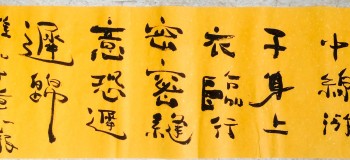 中線游
子身上
衣臨行
密密縫
意恐遲
遲歸